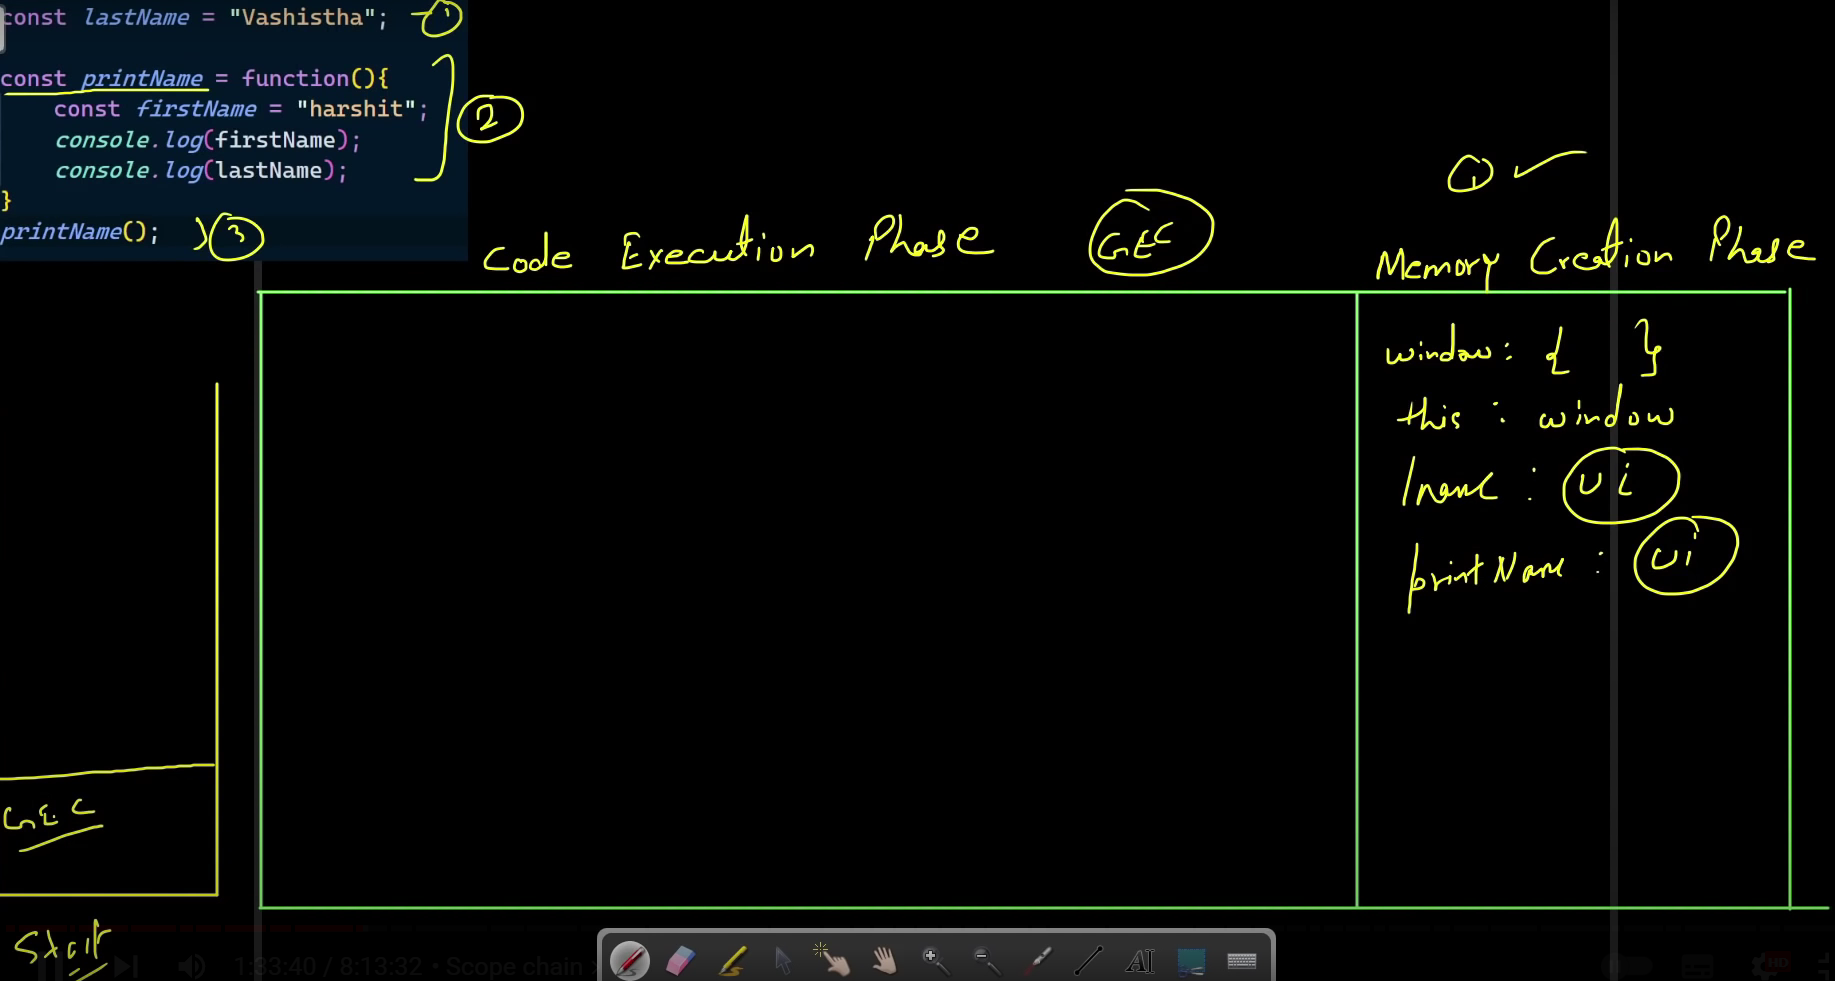 const lastName = "Vashistha"; 1
const printName = function(){
const firstName = "harshit";
console.log(firstName);
console.log(lastName);
}
2
printName(); 3
1
Code Execution Phase GEC Memory Creation Phase
window: { }
this : window
lname : ui
printName : ui
GEC
1:33:40 / 8:13:32 • Scope chain
AI
HD